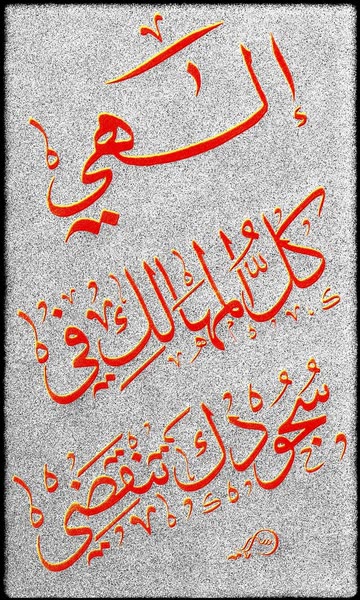 إلهي
كلُّ المهالك في
سُجُودك تنقضي